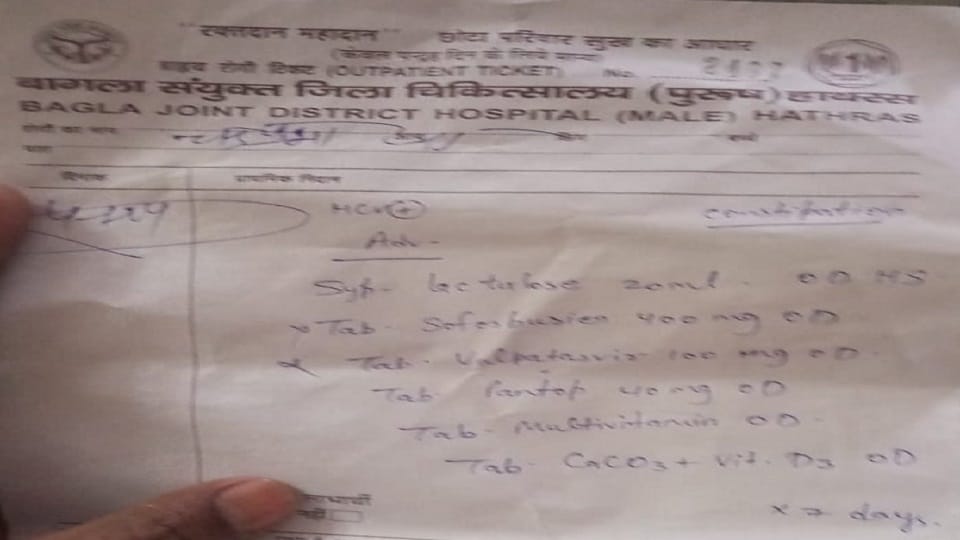 "रक्तदान महादान" छोटा परिवार सुख का आधार
(केवल पन्द्रह दिन के लिये मान्य)
वाह्य रोगी टिकट (OUTPATIENT TICKET) No.
बागला संयुक्त जिला चिकित्सालय (पुरूष) हाथरस
BAGLA JOINT DISTRICT HOSPITAL (MALE) HATHRAS
रोगी का नाम
दिनांक प्राथमिक निदान
HCV (+) constipation
Adv-
Syp- lactulose 20ml - OD HS
Tab- Sofosbuvir 400 mg OD
Tab- Velpatasvir 100 mg OD.
Tab Pantop 40 mg OD
Tab- Multivitamin OD.
Tab- CaCO3 + Vit. D3 OD
x 7 days.